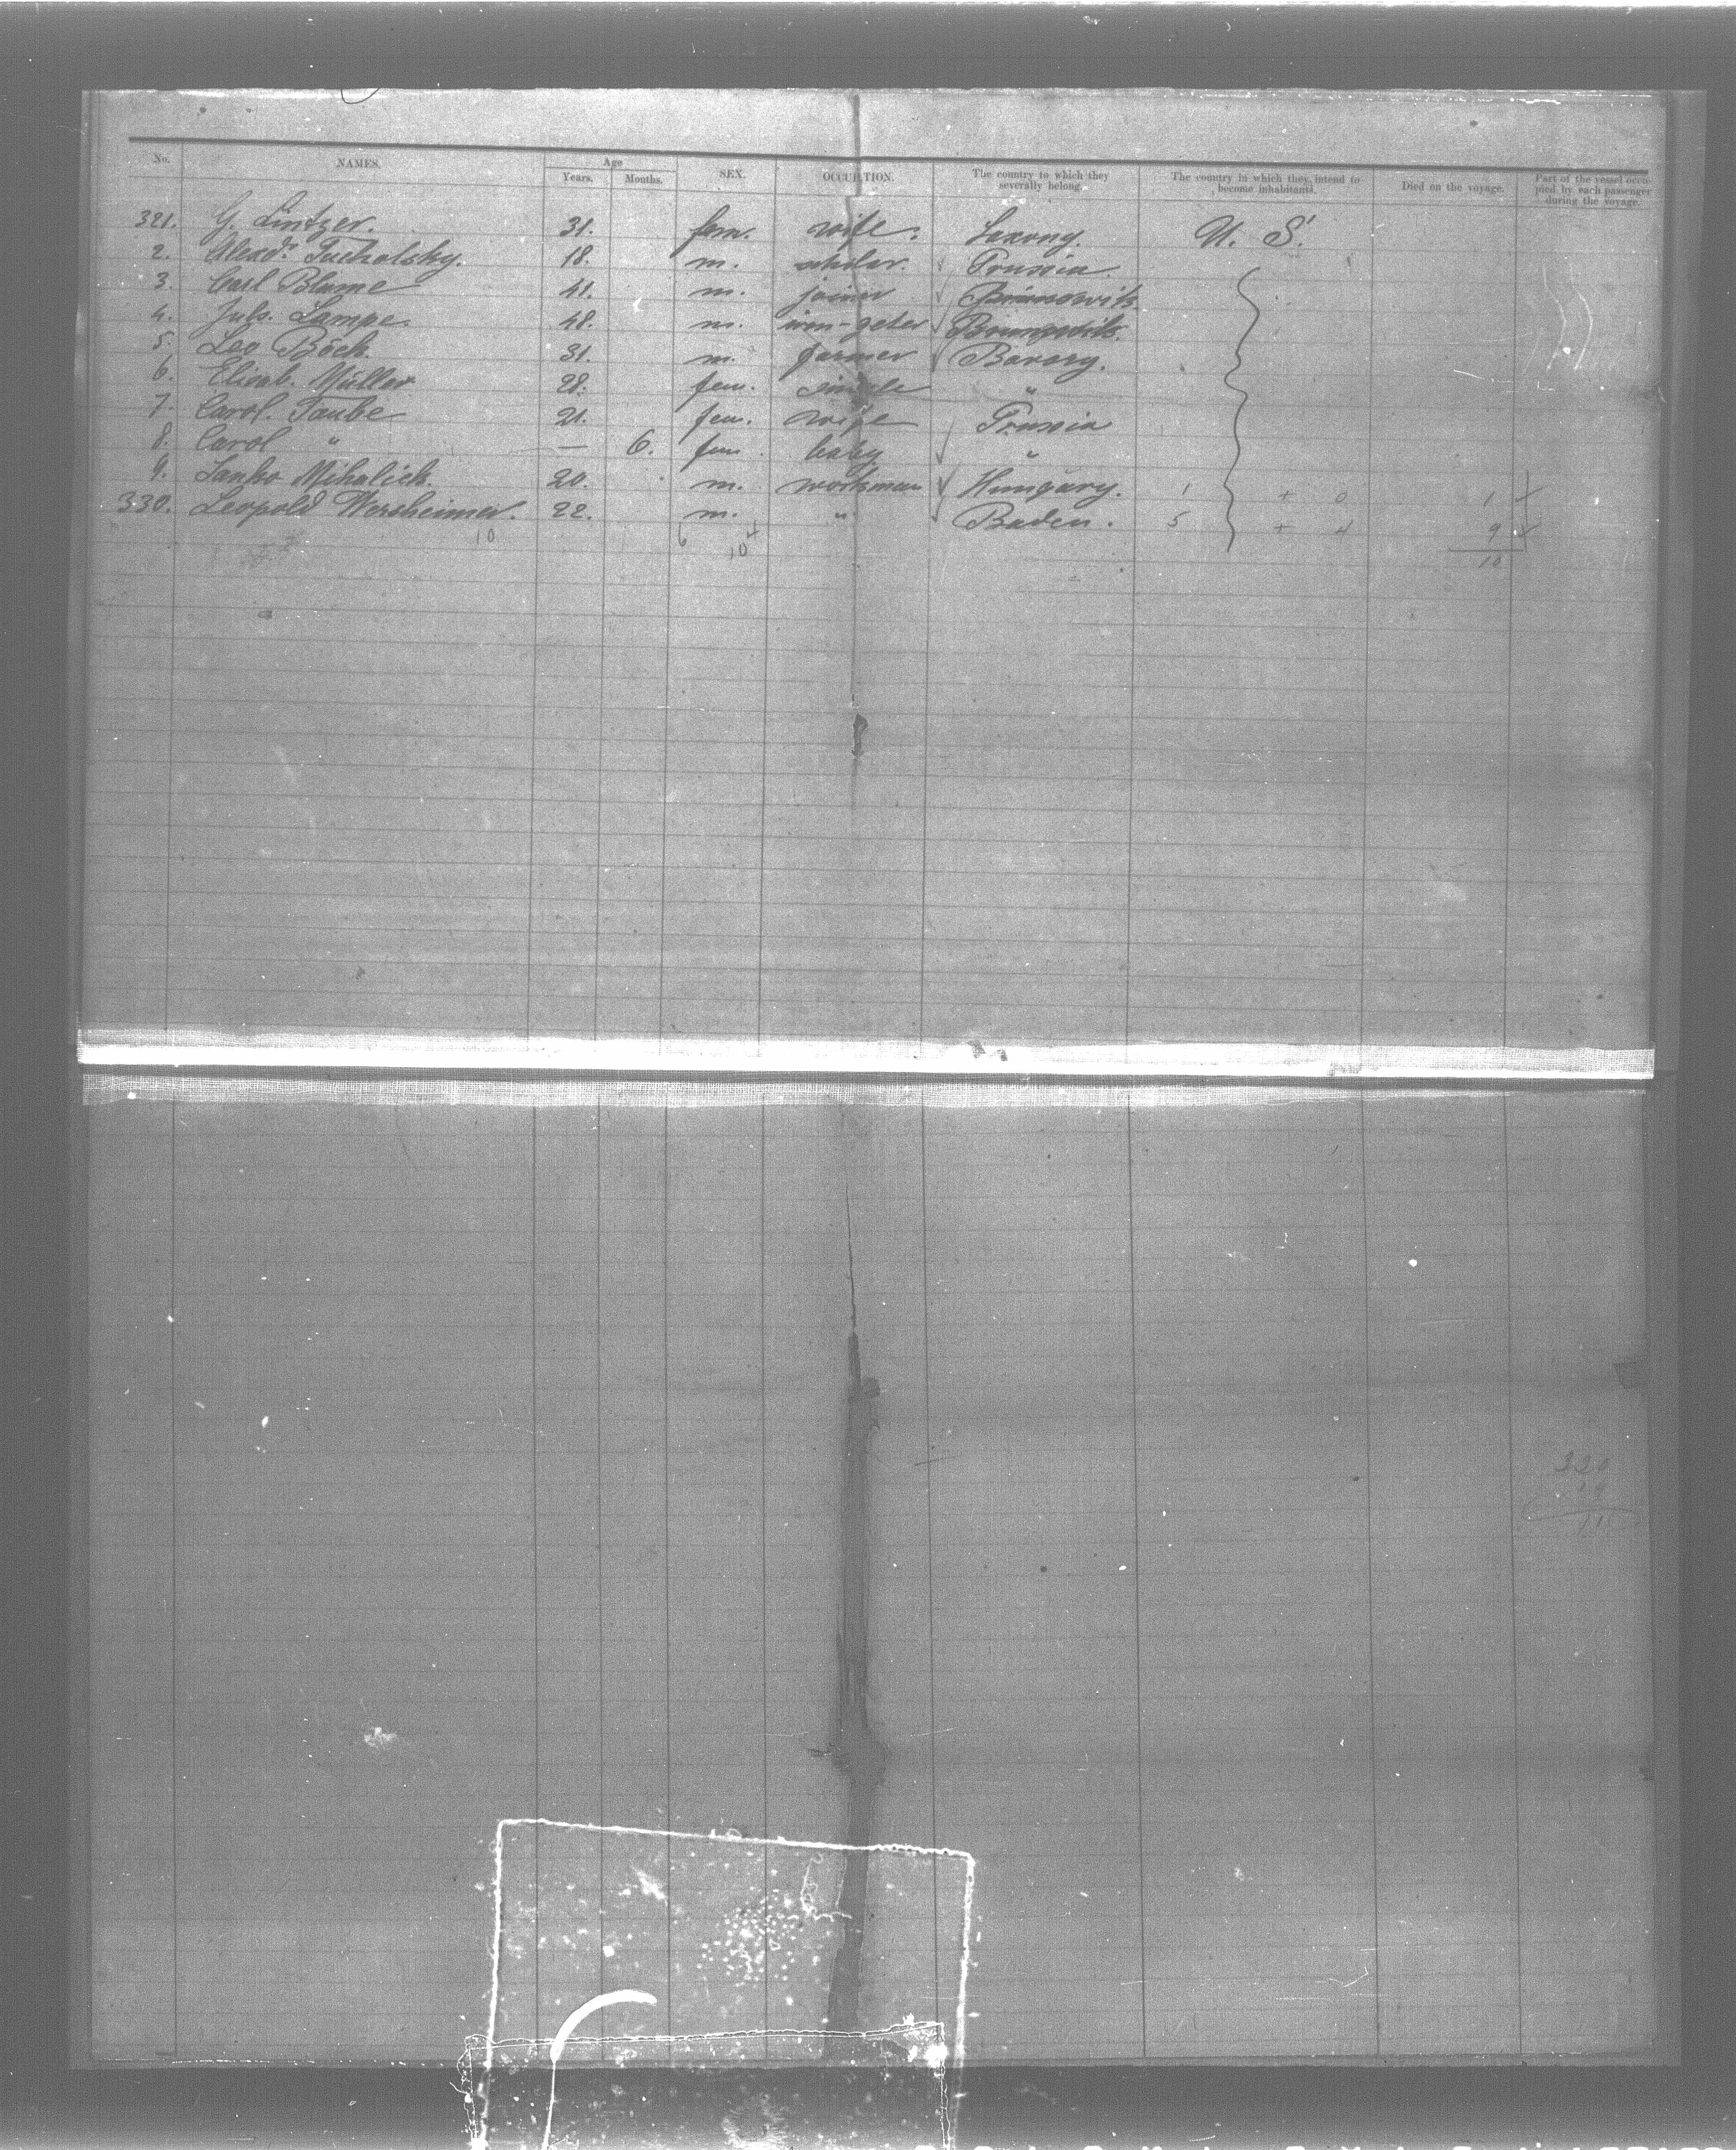 No. NAMES. Age Years. Months. SEX. OCCUPATION. The country to which they severally belong. The country in which they intend to become inhabitants. Died on the voyage. Part of the vessel occupied by each passenger during the voyage.
321. G. Lintzer. 31. fem. wife. Saxony. U. S.
2. Alexdr. Tucholsky. 18. m. scholar. Prussia
3. Carl Blume 41. m. joiner Brunswik
4. Juls. Lampe. 48. m. iron-geter Brunswik.
5. Leo Böck. 31. m. farmer Bavary.
6. Elisab. Müller 28. fem. single "
7. Carol. Taube 21. fem. wife Prussia
8. Carol " — 6. fem. baby "
9. Janko Mihalick. 20. m. workman Hungary. 1 + 0 1
330. Leopold Wersheimer. 22. m. " Baden. 5 + 4 9
10 6 4 10 10